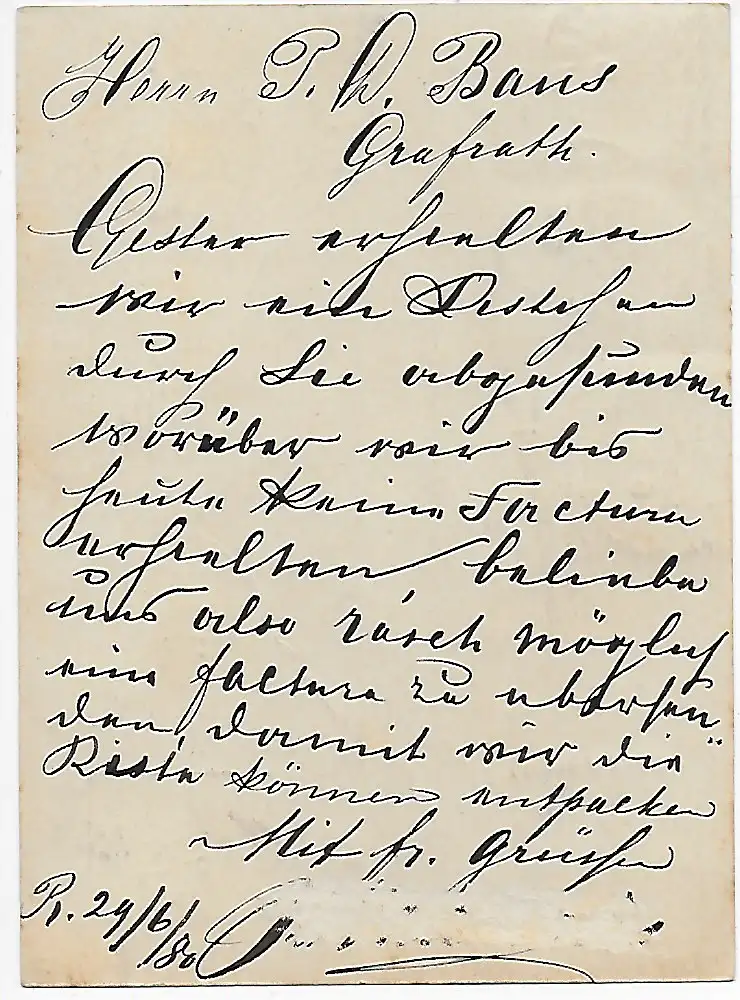 Herrn P. D. Baus
Grafrath.
Gester erhielten
wir ein Kistchen
durch Sie abgesunden
worüber wir bis
heute keine Factura
erhielten, beliebe
uns also rasch möglich
eine factura zu ubersen„
den, damit wir die
Kiste können entpacken
Mit fr. Grüssen
R. 29/6/80